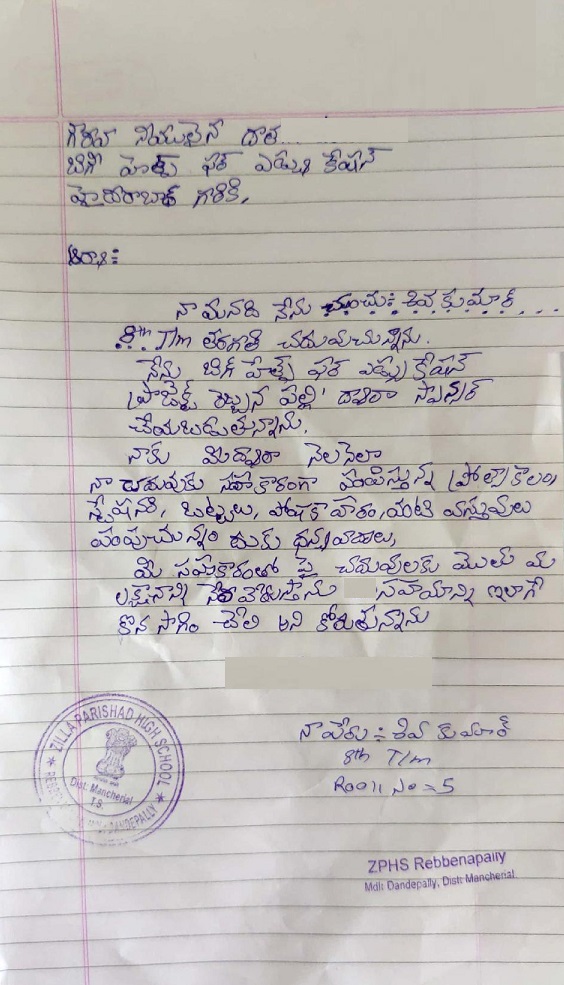 గౌరవ నీయులైన దాత
బిగ్ హెల్ప్ ఫర్ ఎడ్యు కేషన్
హైదరాబాద్ గారికి,
నా మనవి నేను చుంచు: శివ కుమార్
8th T/m తరగతి చదువుచున్నాను.
నేను బిగ్ హెల్ప్ ఫర్ ఎడ్యు కేషన్
ప్రాజెక్ట్ రెబ్బన పల్లి' ద్వారా స్పాన్సర్
చేయబడుతున్నాను.
నాకు మీద్వారా నెలనెలా
నా చదువుకు సహకారంగా పంపిస్తున్న
స్టేషనరీ, బట్టలు, పోషకాహారం, వంటి వస్తువులు
పంపుచున్నం దుకు ధన్యవాదాలు,
మీ సహకారంతో పై చదువులకు
లక్ష్యాన్ని నేరవేరుస్తాను సహాయాన్ని ఇలాగే
కొన సాగిం చాలి అని కోరుతున్నాను
నా పేరు :- శివ కుమార్
8th T/m
Rooll No = 5
ZILLA PARISHAD HIGH SCHOOL
Dist: Mancherial
T.S.
DANDEPALLY
ZPHS Rebbenapally
Mdl: Dandepally, Dist: Mancherial